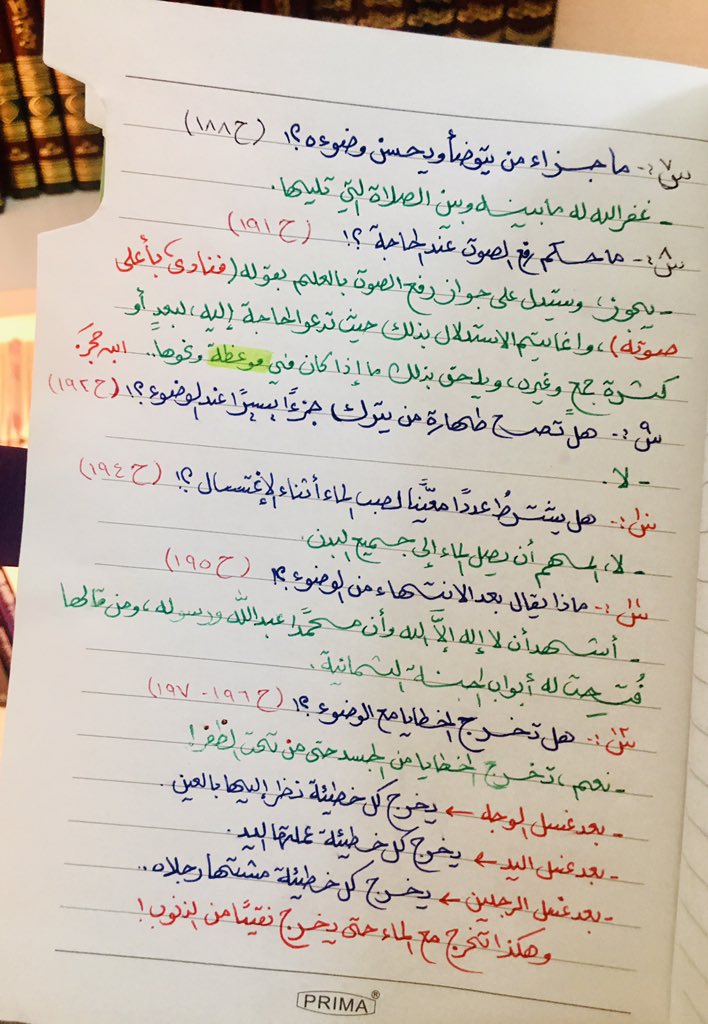 س٧:- ما جزاء من يتوضأ ويحسن وضوءه؟! (ح١٨٨)
- غفر الله له ما بينه وبين الصلاة التي تليها.
س٨:- ما حكم رفع الصوت عند الحاجة؟! (ح١٩١)
- يجوز، وستدل على جواز رفع الصوت بالعلم بقوله (فنادى بأعلى
صوته)، وإنما يتم الاستدلال بذلك حيث تدعو الحاجة إليه، لبعدٍ أو
كثرة جمع وغيره، ويلحق بذلك ما إذا كان في موعظة ونحوها.. ابن حجر.
س٩:- هل تصح طهارة من يترك جزءًا يسيرًا عند الوضوء؟! (ح١٩٢)
- لا.
س١٠:- هل يشترطُ عددًا معيَّنًا لصب الماء أثناء الإغتسال؟! (ح١٩٤)
- لا، المهم أن يصل الماء إلى جميع البدن.
س١١:- ماذا يقال بعد الانتهاء من الوضوء؟! (ح١٩٥)
- أشهد أن لا إله إلاَّ الله وأن محمَّدًا عبدالله ورسوله، ومن قالها
فُتِحت له أبواب الجنة الثمانية.
س١٢:- هل تخرج الخطايا مع الوضوء؟! (ح١٩٦-١٩٧)
- نعم، تخرج الخطايا من الجسد حتى من تحت الظُفر!
- بعد غسل الوجه ← يخرج كل خطيئة نظر إليها بالعين.
- بعد غسل اليد ← يخرج كل خطيئة عملتها اليد.
- بعد غسل الرجلين ← يخرج كل خطيئة مشتها رجلاه..
وهكذا تخرج مع الماء حتى يخرج نقيًّا من الذنوب!
PRIMA®